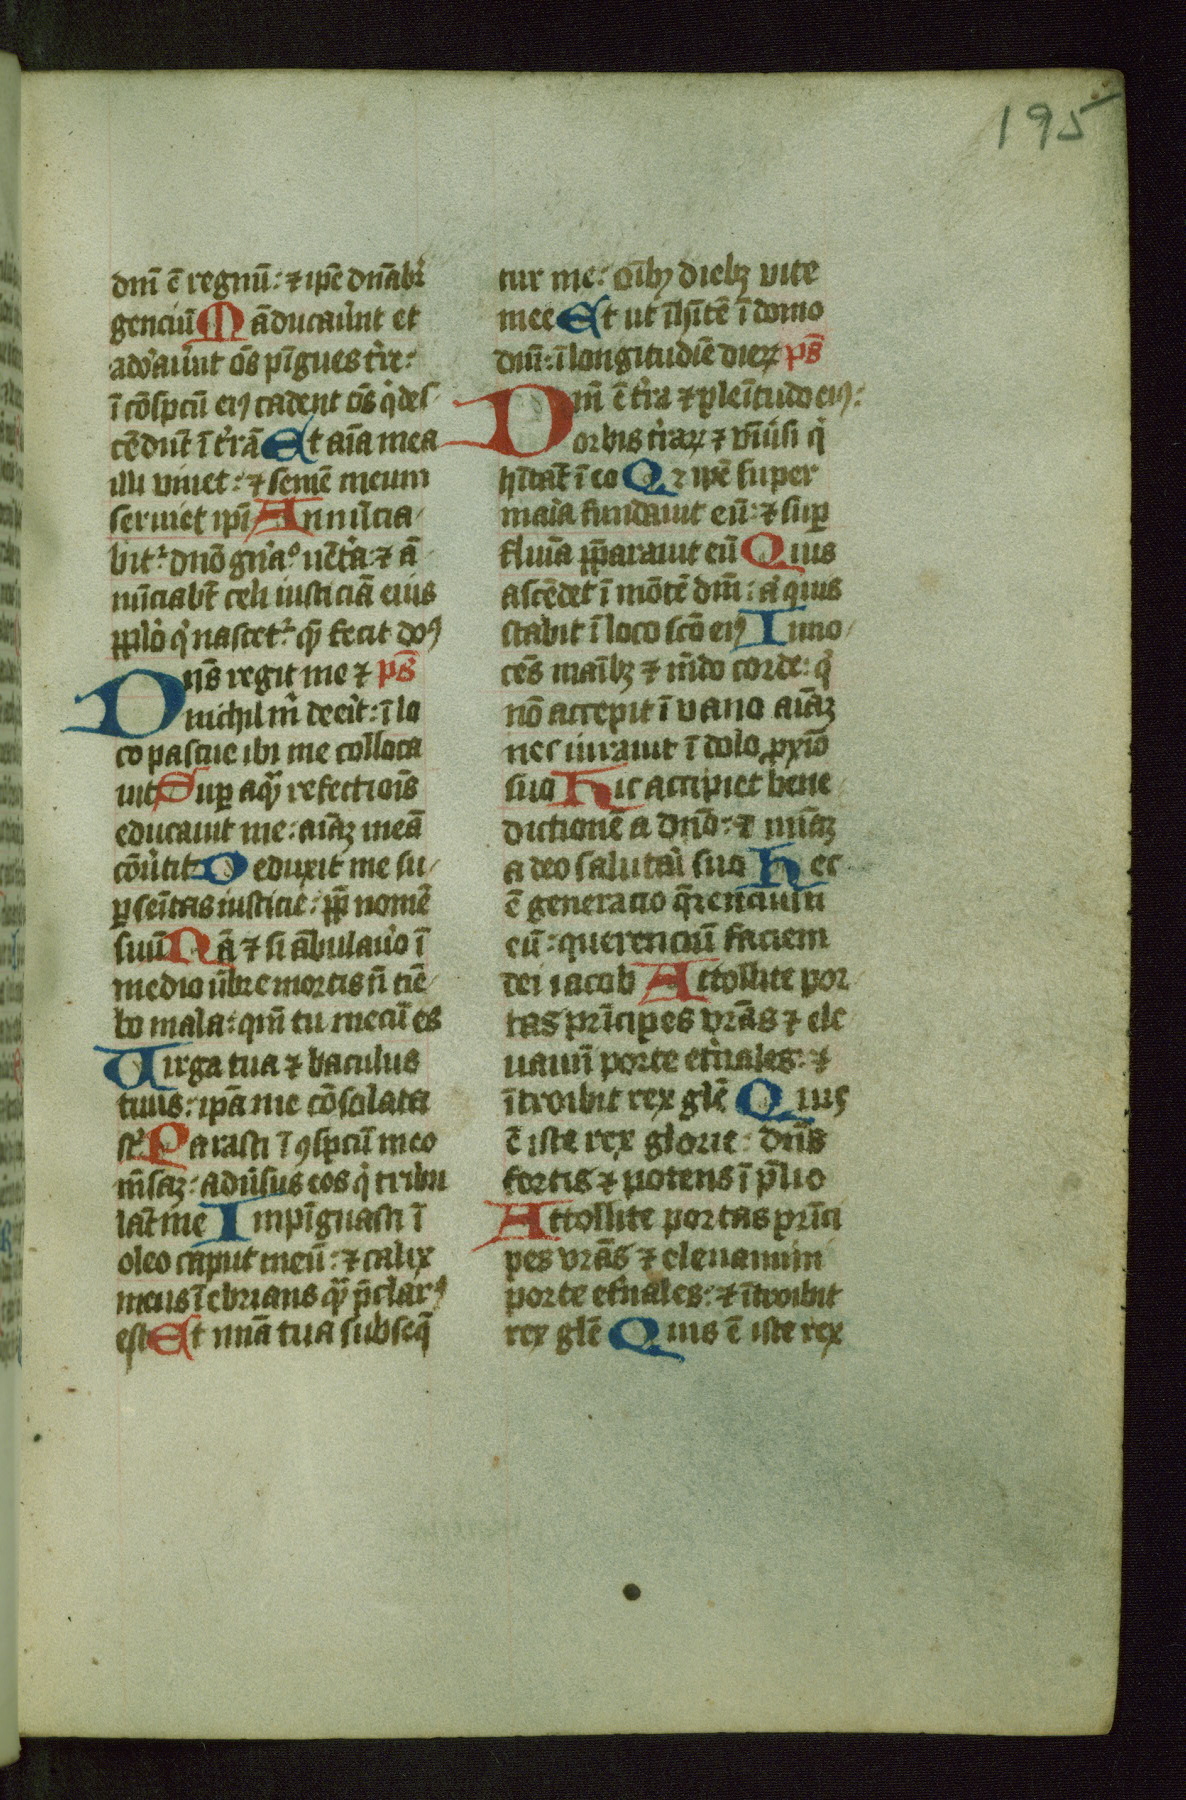 195
dnī ē regnū: ⁊ ip̄e dn̄abr̄
genciū Māducauer̄nt et
adorauer̄nt om̄s pīgues tr̄re:
ī cōspc̄u eiꝰ cadent om̄s q̇ des
cēdūt ī tr̄rā Et aīa mea
illi viuet: ⁊ semē meum
seruiet ip̄i Annūcia
bit᷑ dnō gn̄raº uēt̄a: ⁊ ā
nūciabt̄ celi iusticiā eius
pp̄lō q̇ nascet᷑ qᷓ fecit dn̄s
Dn̄s regit me ⁊ ps̄
nichil m̄ deer̄it: ī lo
co pascue ibi me colloca
uit Suꝑ aqᷓ refectiōis
educauit me: aīaꝫ meā
cōuer̄tit Deduxit me su
ꝑ sem̄itas iusticie: pp̄ nomē
suū Nā ⁊ si ābulauero ī
medio ūbre mortis n̄ time
bo mala: qm̄ tu mecū es
Uirga tua ⁊ baculus
tuus: ip̄a me cōsolata
st̄ Parasti ī ꝯspc̄u meo
m̄saꝫ: aduer̄sus eos q̇ tribu
lāt me Impīguasti ī
oleo caput meū: ⁊ calix
meus īebrians qᷓ p̄clarꝰ
est Et mīa tua subseq̄
tur me: oīb; dieb; vite
mee Et ut īhītē ī domo
dnī: ī longitudīe dieꝝ ps̄
Dnī ē tr̄ra ⁊ plenītudo eiꝰ:
orbis tr̄raꝝ ⁊ vniūsi q̇
hītāt ī eo Qꝛ ip̄e super
maria fundauit eū: ⁊ suꝑ
flumīa pp̄arauit eū Quis
ascēdet ī mōtē dnī: at̄ quis
stabit ī loco scō eiꝰ Inno
cēs maībꝫ ⁊ mūdo corde: q̇
nō accepit ī vano aīaꝫ
nec iurauit ī dolo pxīo
suo Hic accipiet bene
dictionē a dnō: ⁊ mīaꝫ
a deo salutar̄i suo Hec
ē generacio q̄renciuꝫ
eū: querenciū faciem
dei iacob Attollite por
tas prīcipes vrās ⁊ ele
uamī porte etn̄ales: ⁊
ītroibit rex glē Quis
ē iste rex glorie: dn̄s
fortis ⁊ potens ī p̄lio
Attollite portas prīci
pes vrās ⁊ eleuamīni
porte etn̄ales: ⁊ ītroibit
rex glē Quis ē iste rex